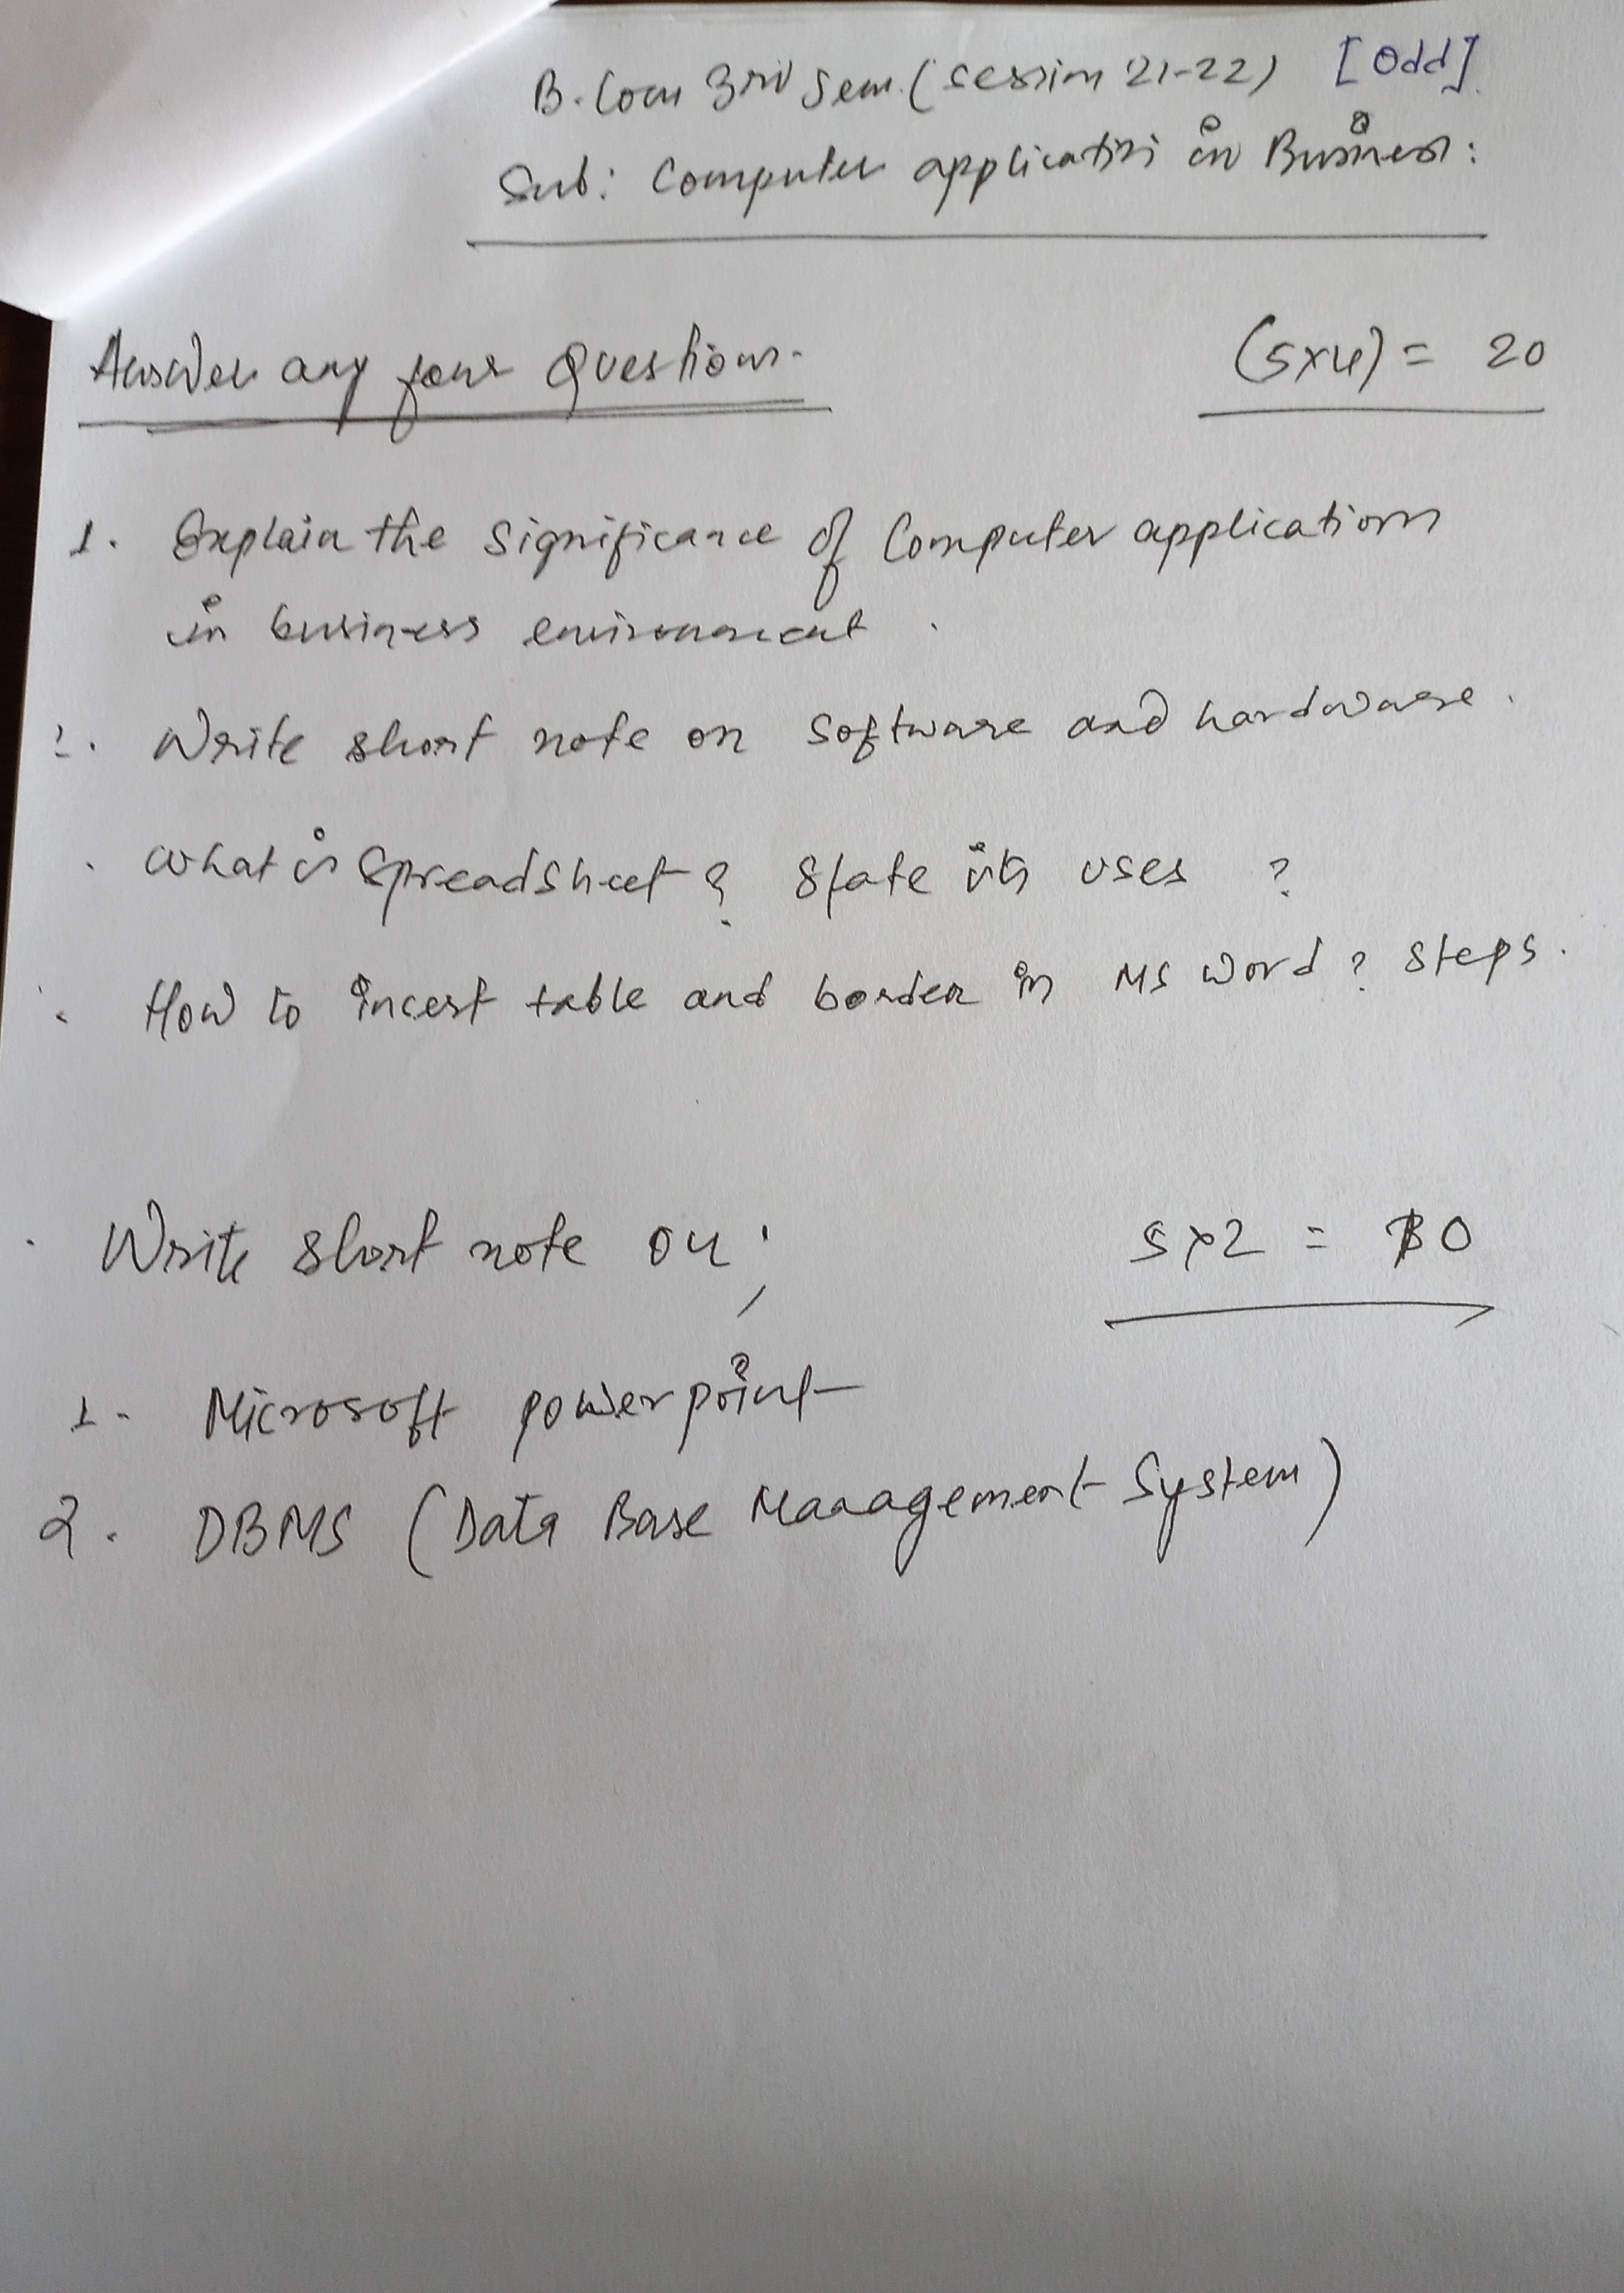 B. Com 3rd Sem. (session 21-22) [Odd]
Sub: Computer application in Business:
Answer any four Questions.
(5x4) = 20
1. Explain the Significance of Computer applications
in business environment.
2. Write short note on Software and hardware.
. What is Spreadsheet? State its uses ?
. How to incest table and border in MS Word? Steps.
. Write short note on;
5x2 = 10
1. Microsoft powerpoint
2. DBMS (Data Base Management System)